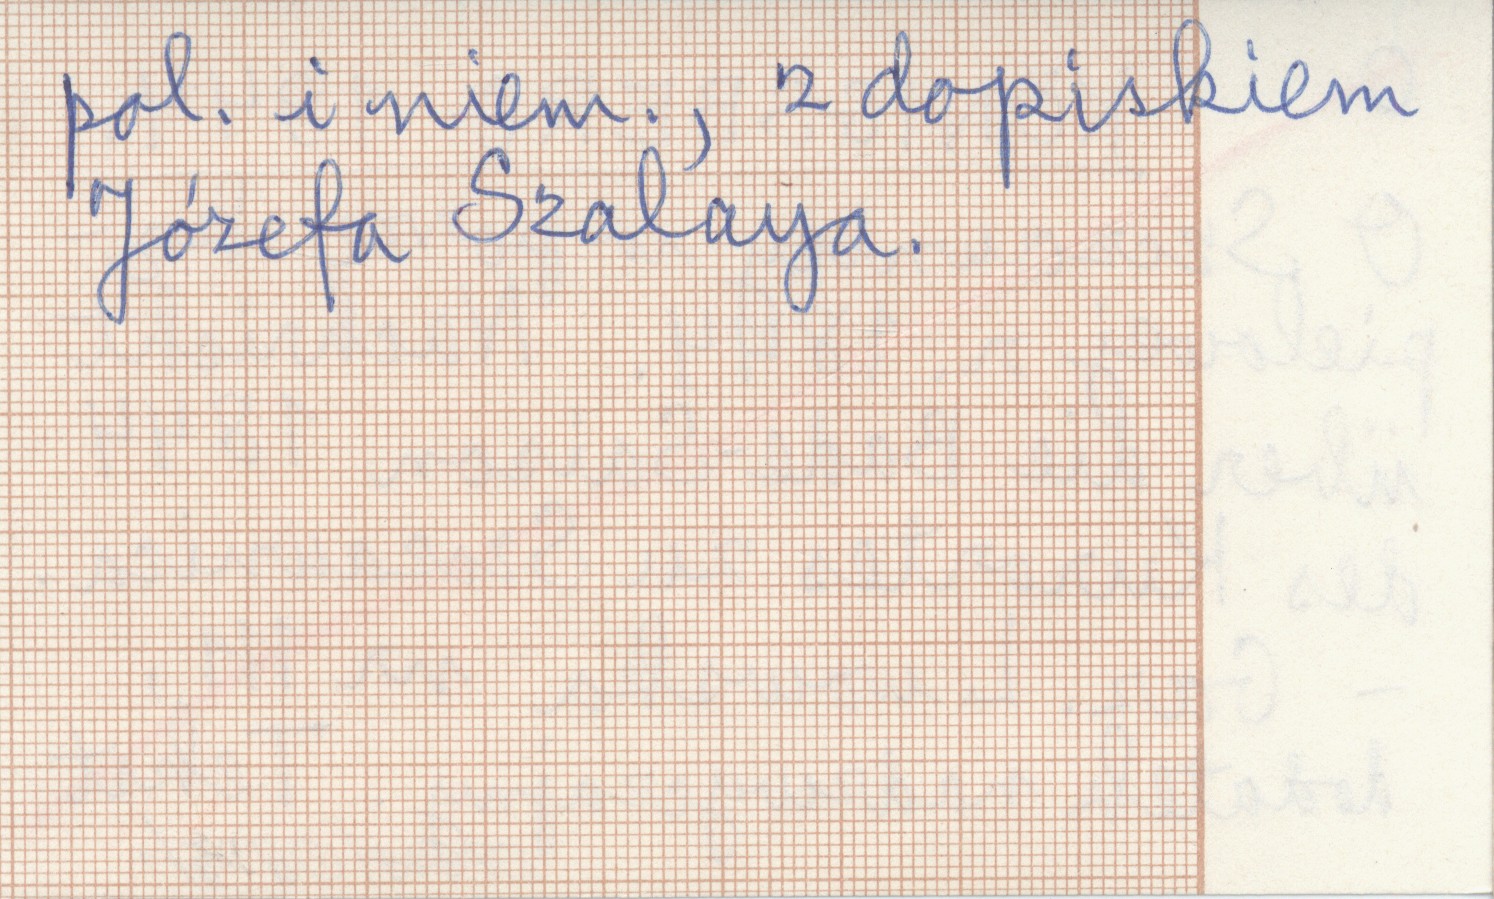 pol. i niem., z dopiskiem
Józefa Szalaya.